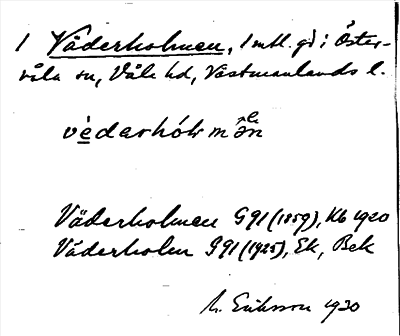 1 Väderholmen, 1 mtl. gd i Öster-
våla sn, Våla hd, Västmanlands l.
vèdarhól mæn
Väderholmen G91 (1859), Kb 1920
Väderholm G91 (1925), Ek, Bek
M. Eriksson 1930